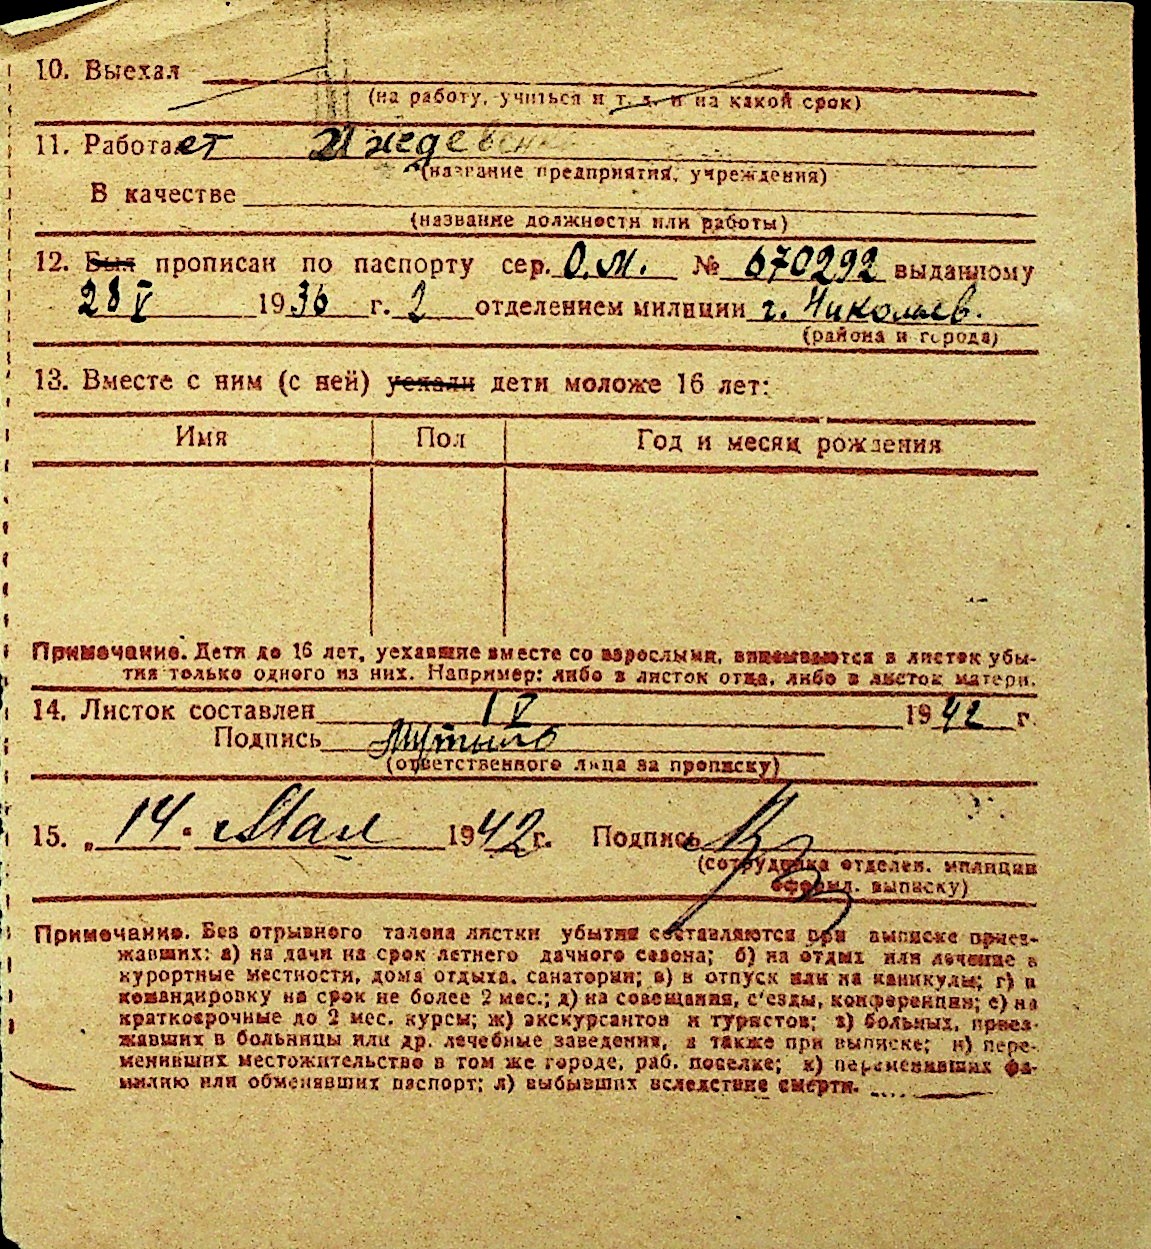 10. Выехал
(на работу, учиться и т. д. и на какой срок)
11. Работает Иждевен
(название предприятия, учреждения)
В качестве
(название должности или работы)
12. Был прописан по паспорту сер. О.М. № 670292 выданному
28 V 1936 г. 2 отделением милиции г. Николаев.
(района и города)
13. Вместе с ним (с ней) уехали дети моложе 16 лет:
Имя Пол Год и месяц рождения
Примечание. Дети до 16 лет, уехавшие вместе со взрослыми, вписываются в листок убы-
тия только одного из них. Например: либо в листок отца, либо в листок матери.
14. Листок составлен 1 V 1942 г.
Подпись
(ответственного лица за прописку)
15. „14" Мая 1942 г. Подпись
(сотрудника отделен. милиции
оформл. выписку)
Примечание. Без отрывного талона листки убытия составляются при выписке приез-
жавших: а) на дачи на срок летнего дачного сезона; б) на отдых или лечение в
курортные местности, дома отдыха, санатории; в) в отпуск или на каникулы; г) в
командировку на срок не более 2 мес.; д) на совещания, с'езды, конференции; е) на
краткосрочные до 2 мес. курсы; ж) экскурсантов и туристов; з) больных, приез-
жавших в больницы или др. лечебные заведения, а также при выписке; и) пере-
менивших местожительство в том же городе, раб. поселке; к) переменивших фа-
милию или обменявших паспорт; л) выбывших вследствие смерти.